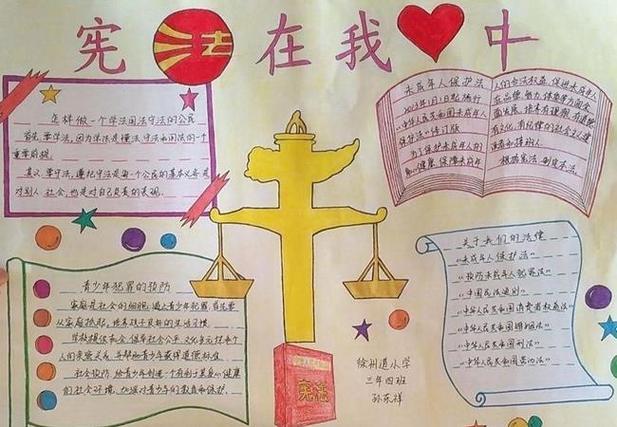 宪法在我中
怎样做一个学法用法守法的公民
首先要学法,因为学法是懂法、守法和用法的一个
重要前提。
其次要守法,遵纪守法是每一个公民的基本义务是
对别人、社会,也是对自己负责的表现。
未成年人保护法
2013年1月1日起施行
《中华人民共和国未成年人
保护法》修订版
为了保护未成年人
的身心健康,保障未成年
人的合法权益,促进未成年人
在品德、智力、体质等方面全
面发展,培养有理想、有道德
有文化、有纪律的社会主义
根据宪法,制定本法。
青少年犯罪的预防
家庭是社会的细胞,遏止青少年犯罪,首先要
从家庭抓起,培养孩子良好的生活习惯。
学校提供
社会预防,给青少年创造一个有利于其身心健康
的社会环境,加强对青少年的教育和保护。
关于我们的法律
《未成年人保护法》
《预防未成年人犯罪法》
《中国民法通则》
《中华人民共和国消费者权益法》
《中华人民共和国婚姻法》
《中华人民共和国刑法》
《中华人民共和国宪法》
宪法
徐州道小学
三年四班
孙东祥